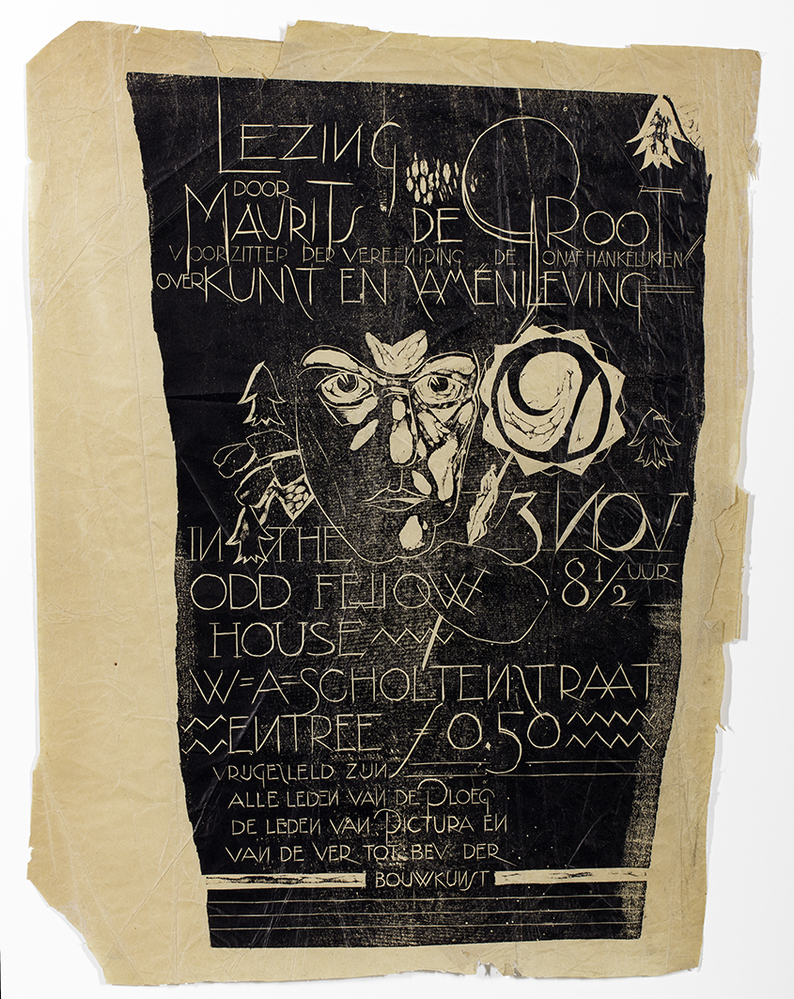 LEZING
DOOR
MAURITS DE GROOT
VOORZITTER DER VEREENIPING DE ONAFHANKELIJKEN
OVER KUNST EN SAMENLEVING
13 NOV
IN THE
ODD FELLOW 8½ UUR
HOUSE
W=A=SCHOLTENSTRAAT
ENTREE = f0.50
VRIJGESTELD ZIJN
ALLE LEDEN VAN DE PLOEG
DE LEDEN VAN PICTURA EN
VAN DE VER TOT BEV DER
BOUWKUNST